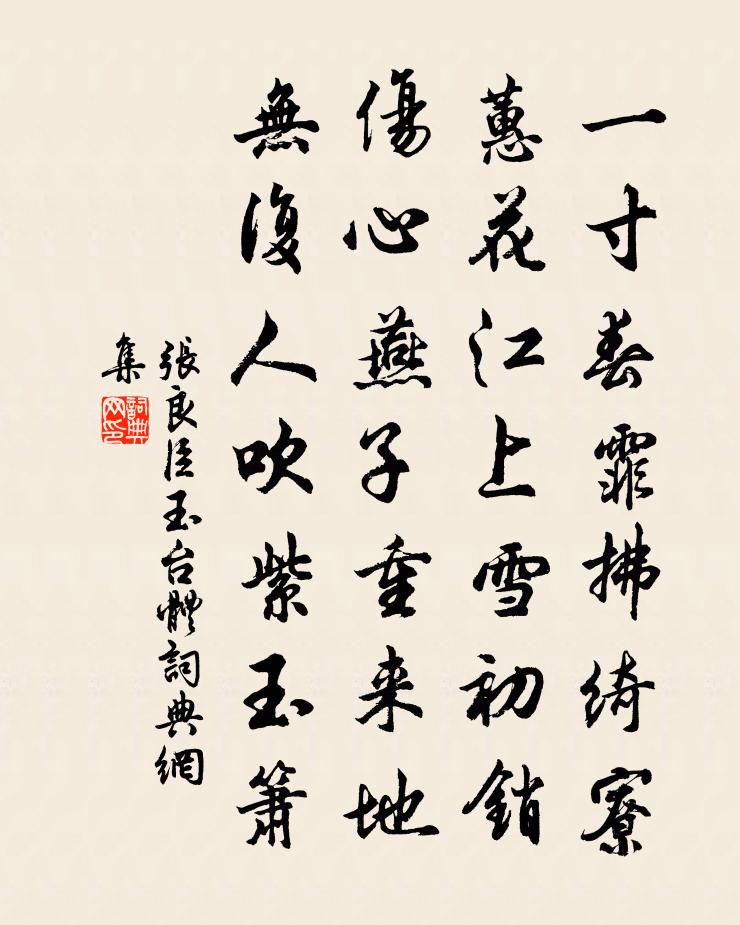 一寸春霏拂綺寮
蕙花江上雪初銷
傷心燕子重来地
無復人吹紫玉簫
張良臣玉台體詞典網
集
詞典
网印